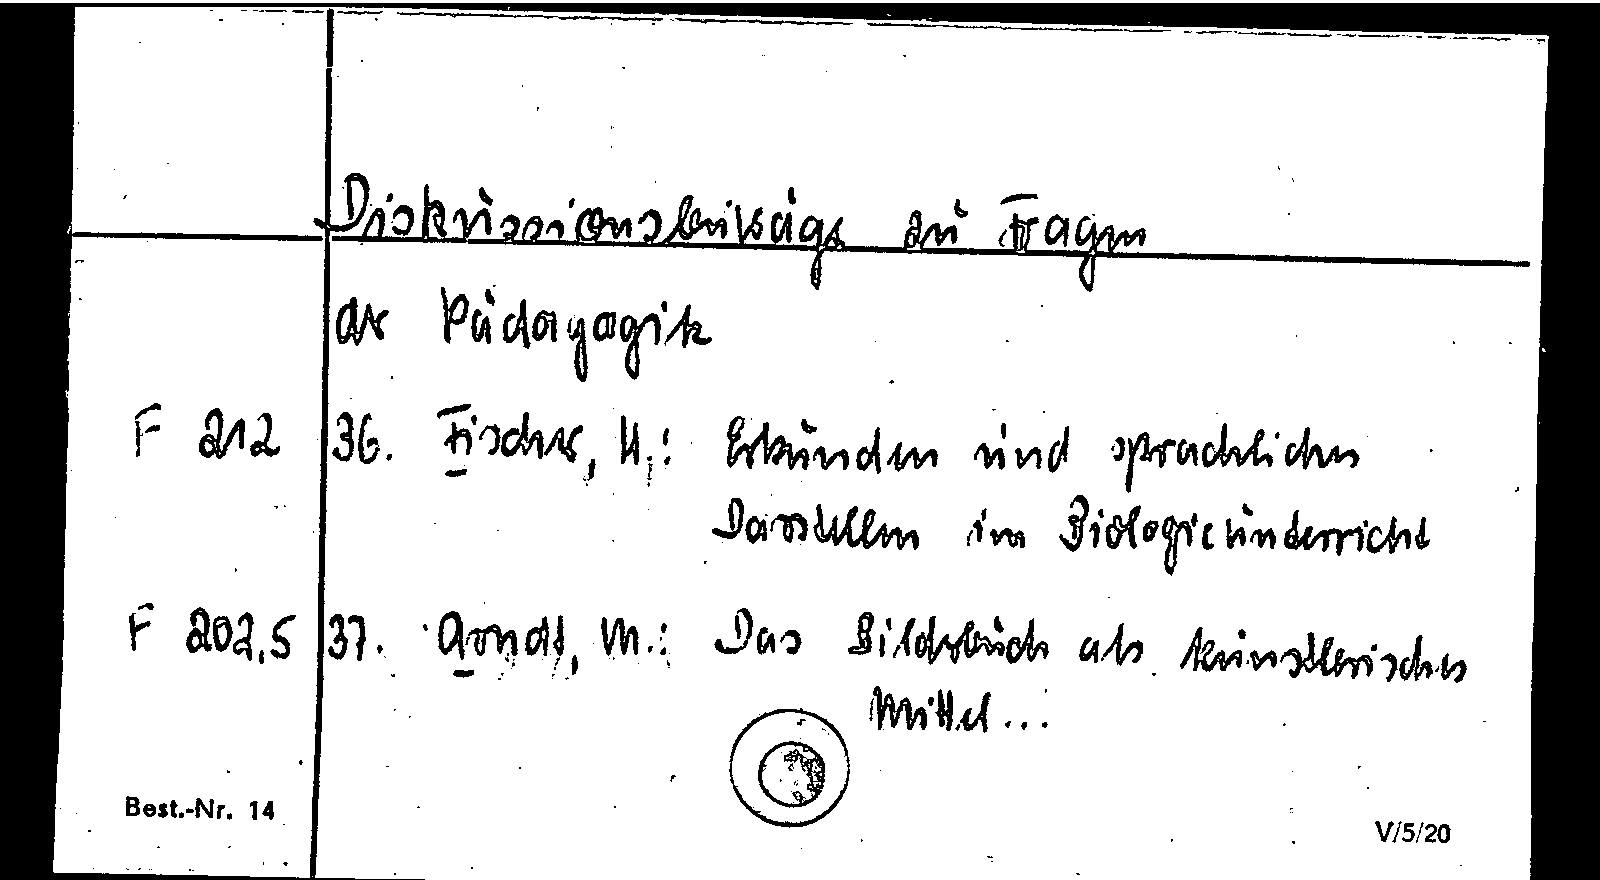 Diskussionsbeiträge zu Fragen
der Pädagogik
F 212 36. Fischer, H.: Erkunden und sprachliches
Darstellen im Biologieunterricht
F 202,5 37. Arndt, M.: Das Bilderbuch als künstlerisches
Mittel...
Best.-Nr. 14
V/5/20